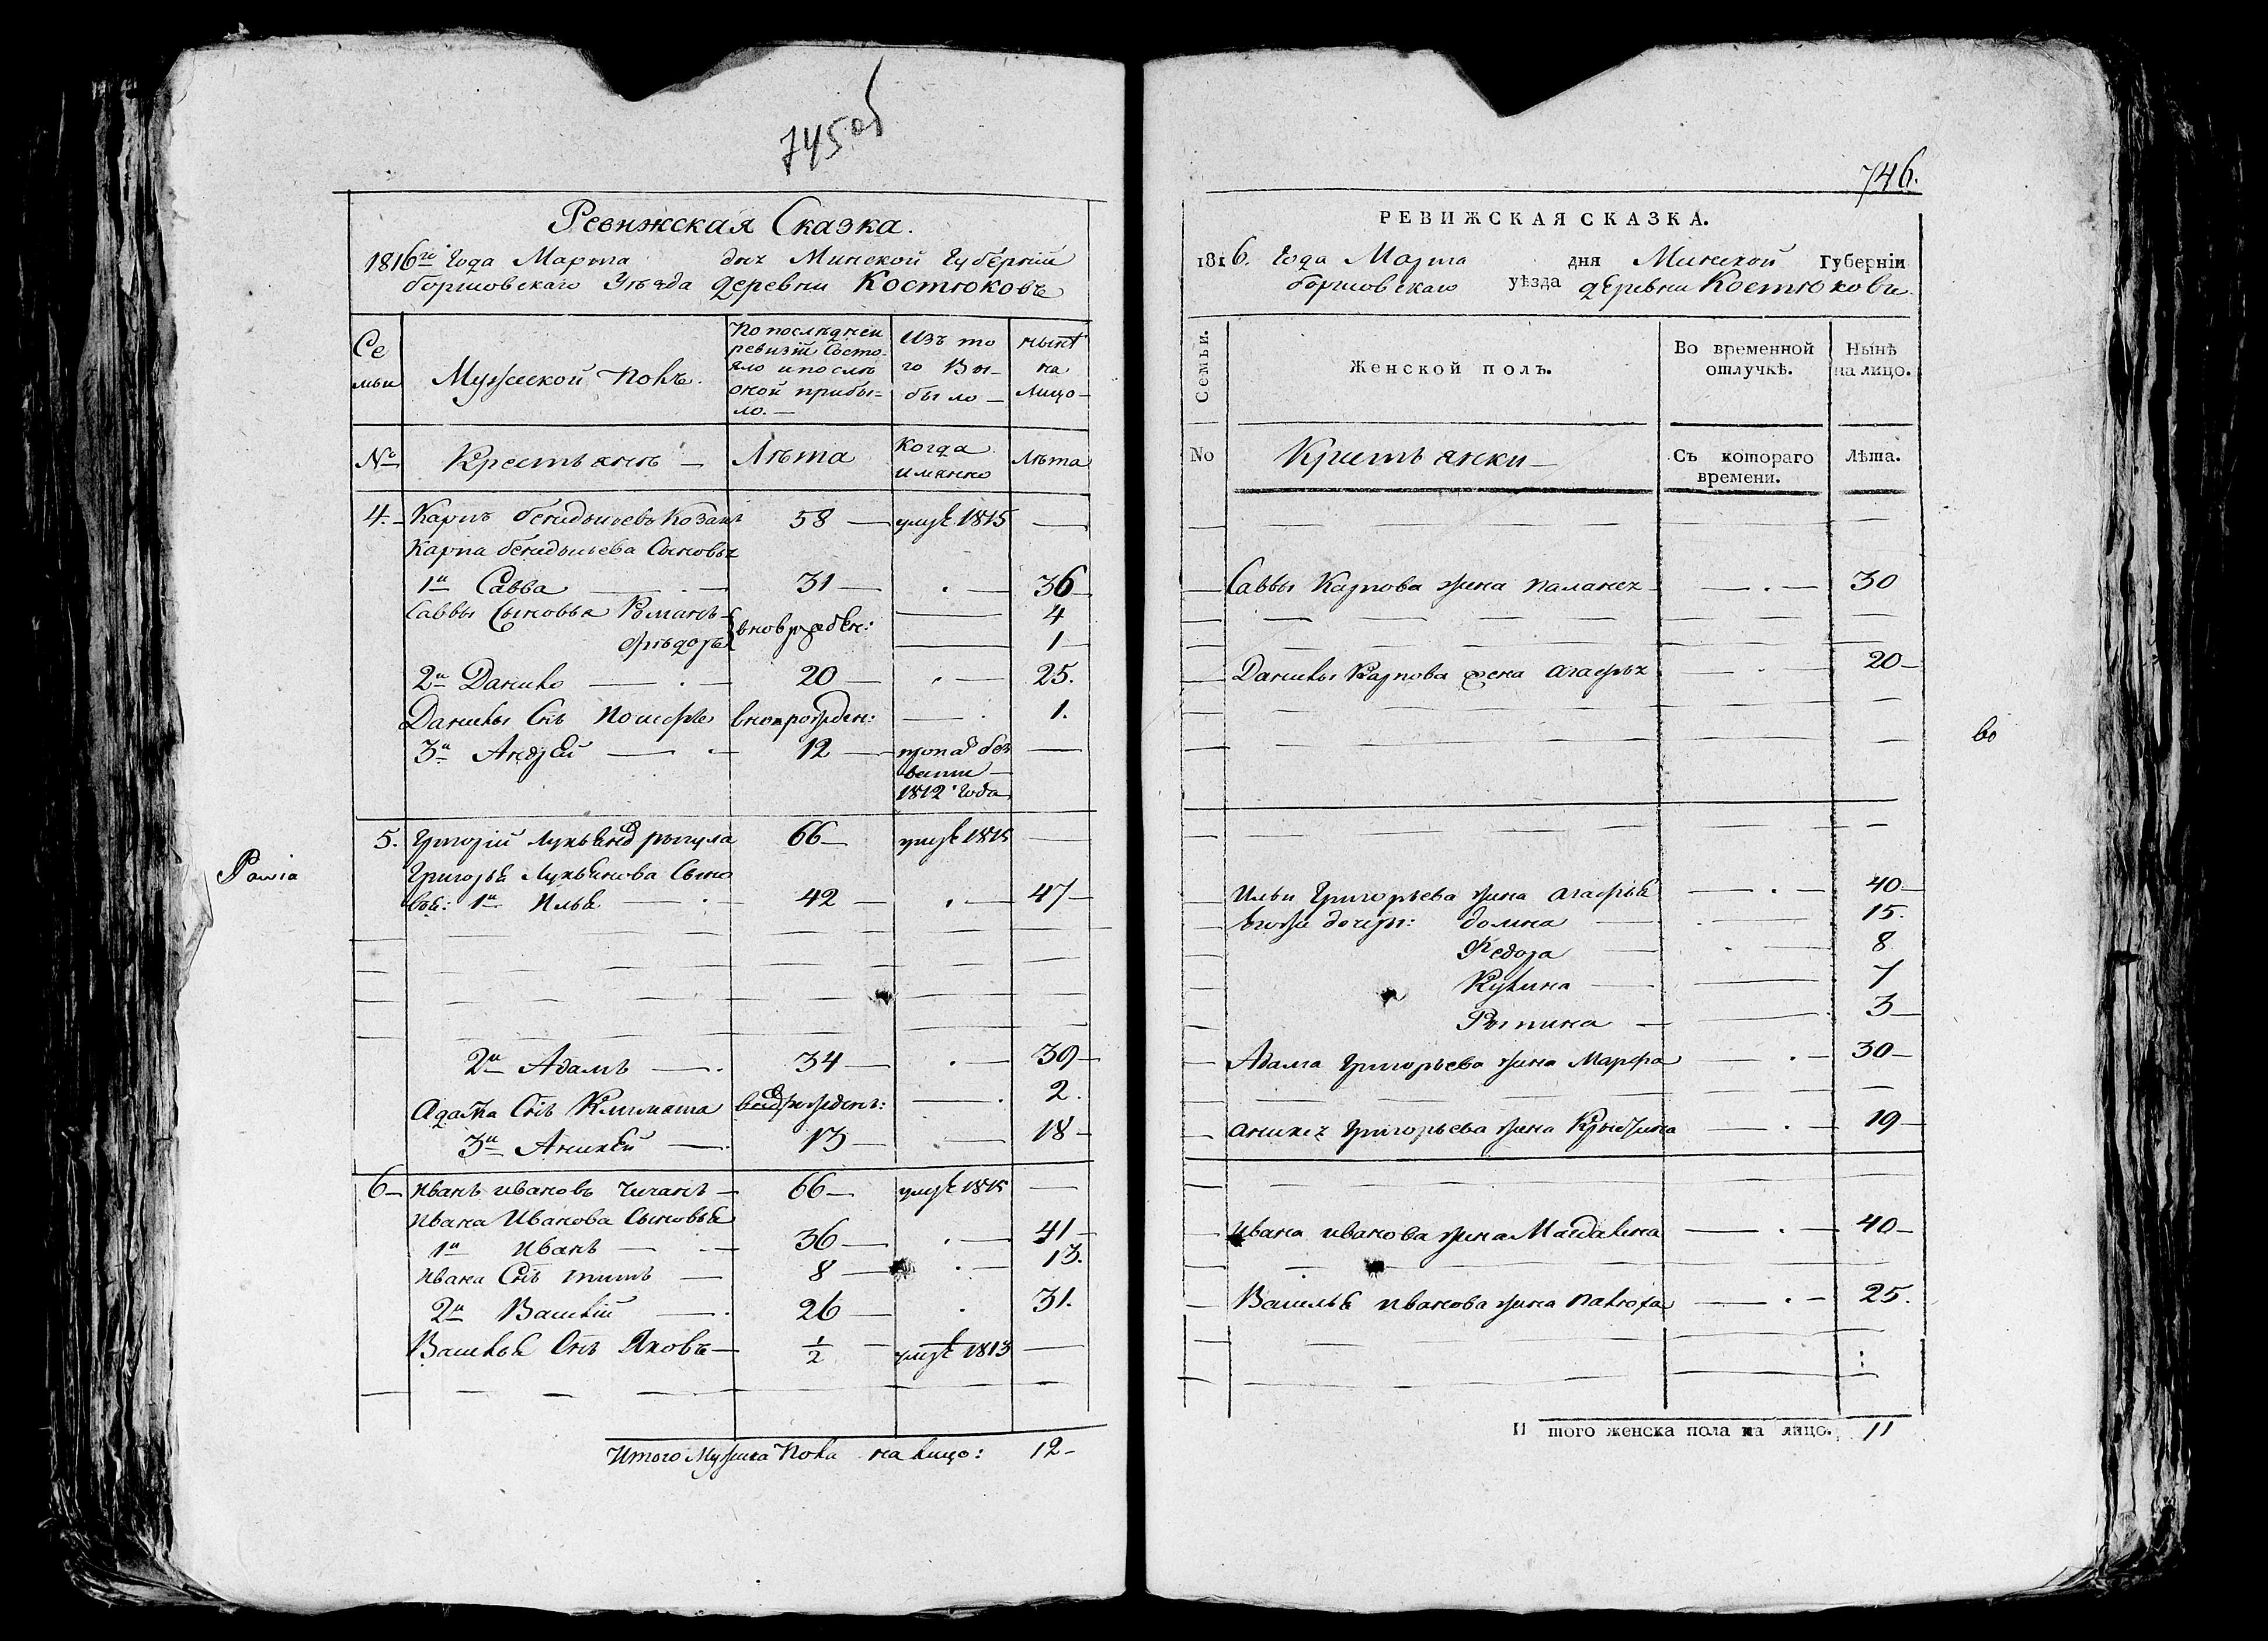 745об
Ревижская Сказка.
1816го Года Марта дня Минской Губерніи
борисовскаго Уѣзда деревни Костюковъ
Се
мьи
Мужеской полъ.
По послѣдней
ревизіи Состо-
яло и послѣ
оной прибы=
ло.—
Изъ то
го Вы-
было —
нынѣ
на
Лицо —
№
Крестьянѣ —
Лѣта
Когда
имянно
Лѣта
4. Карпъ бенедыктевъ 58 — умре 1815 —
Карпа бенедыктева Сыновья
1й Савва — 31 — . — 36
Саввы Сыновья Романъ — 4
Ѳѣдоръ вновьрожден: — 1
2й Данило — 20 — . — 25.
Данилы Снъ вноврожден: — 1.
3й Андрей — 12 — пропал без
вѣсти —
1812 Года
5. Григорій Лукьянов 66 — умре 1815 —
Григорья Лукьянова Сыно
вья: 1й Илья — 42 — . — 47 —
2й Адамъ — 34 — . — 39 —
Адама Снъ врожденъ: — 2.
3й Аникей — 13 — 18 —
6 — Иванъ ивановъ 66 — умре 1815 —
Ивана Иванова Сыновья
1й Иванъ — 36 — . — 41 —
Ивана Снъ титъ — 8 — . — 13.
2й Василій — 26 — . 31.
Василья Снъ Яковъ — 1/2 — умре 1813 —
Итого Мужска Пола на лицо: 12 —
746.
РЕВИЖСКАЯ СКАЗКА.
1816. Года Марта дня Минской Губерніи
борисовскаго уѣзда деревни Костюковъ.
Семьи.
Женской полъ.
Во временной
отлучкѣ.
Нынѣ
на лицо.
No
Крестьянки —
Съ котораго
времени.
Лѣта.
Саввы Карпова жена паланея — . — 30
Данилы Карпова жена агафья — . — 20 —
во
Ильи Григорьева жена агафья — . — 40 —
дочери: домна — 15.
Ѳедора — 8
Кулина — 7
3 —
Адама Григорьева жена Марфа — . — 30 —
аникея Григорьева жена — . — 19 —
ивана иванова жена Магдалена — . — 40 —
Василья иванова жена — . — 25.
И того женска пола на лицо. 11